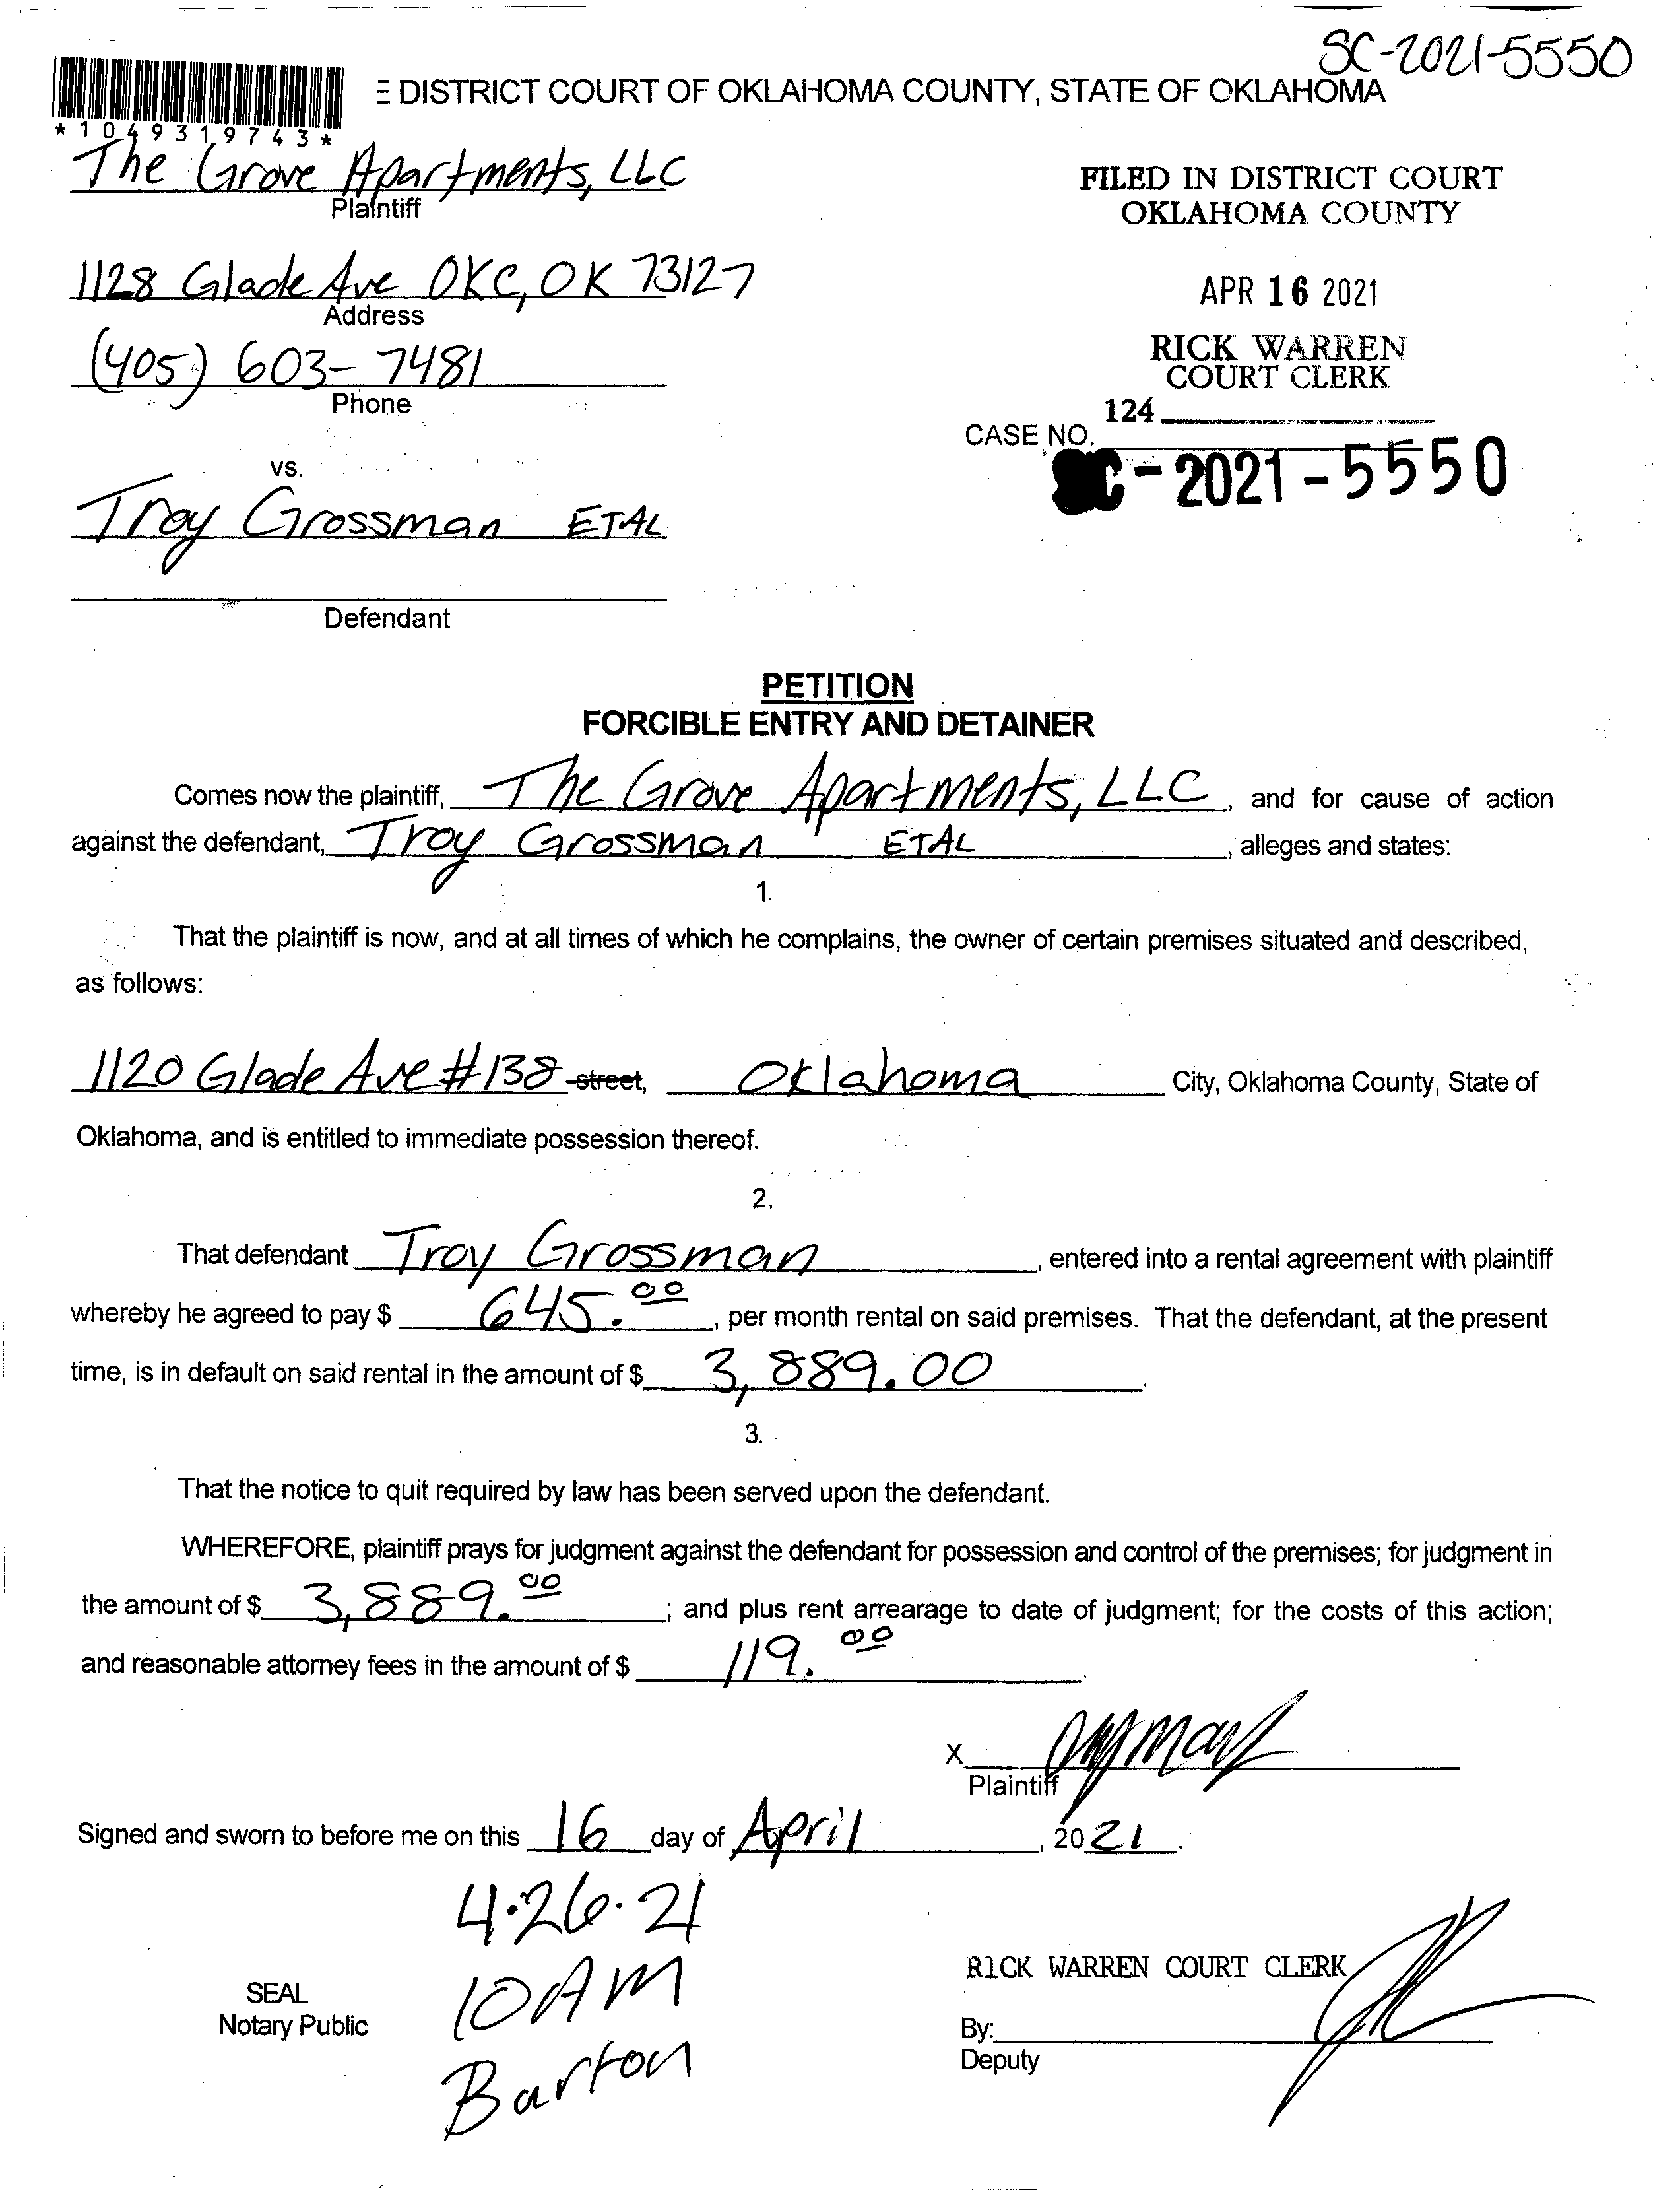 SC-2021-5550
E DISTRICT COURT OF OKLAHOMA COUNTY, STATE OF OKLAHOMA
*1049319743*
The Grove Apartments, LLC
Plaintiff
FILED IN DISTRICT COURT
OKLAHOMA COUNTY
1128 Glade Ave OKC, OK 73127
Address
APR 16 2021
(405) 603-7481
Phone
RICK WARREN
COURT CLERK
124
CASE NO.
SC-2021-5550
vs.
Troy Grossman ETAL
Defendant
PETITION
FORCIBLE ENTRY AND DETAINER
Comes now the plaintiff, The Grove Apartments, LLC, and for cause of action
against the defendant, Troy Grossman ETAL, alleges and states:
1.
That the plaintiff is now, and at all times of which he complains, the owner of certain premises situated and described,
as follows:
1120 Glade Ave #138 street, Oklahoma City, Oklahoma County, State of
Oklahoma, and is entitled to immediate possession thereof.
2.
That defendant Troy Grossman, entered into a rental agreement with plaintiff
whereby he agreed to pay $ 645.00, per month rental on said premises. That the defendant, at the present
time, is in default on said rental in the amount of $ 3,889.00.
3.
That the notice to quit required by law has been served upon the defendant.
WHEREFORE, plaintiff prays for judgment against the defendant for possession and control of the premises; for judgment in
the amount of $ 3,889.00; and plus rent arrearage to date of judgment; for the costs of this action;
and reasonable attorney fees in the amount of $ 119.00.
X
Plaintiff
Signed and sworn to before me on this 16 day of April, 2021.
4.26.21
10AM
Barton
SEAL
Notary Public
RICK WARREN COURT CLERK
By:
Deputy